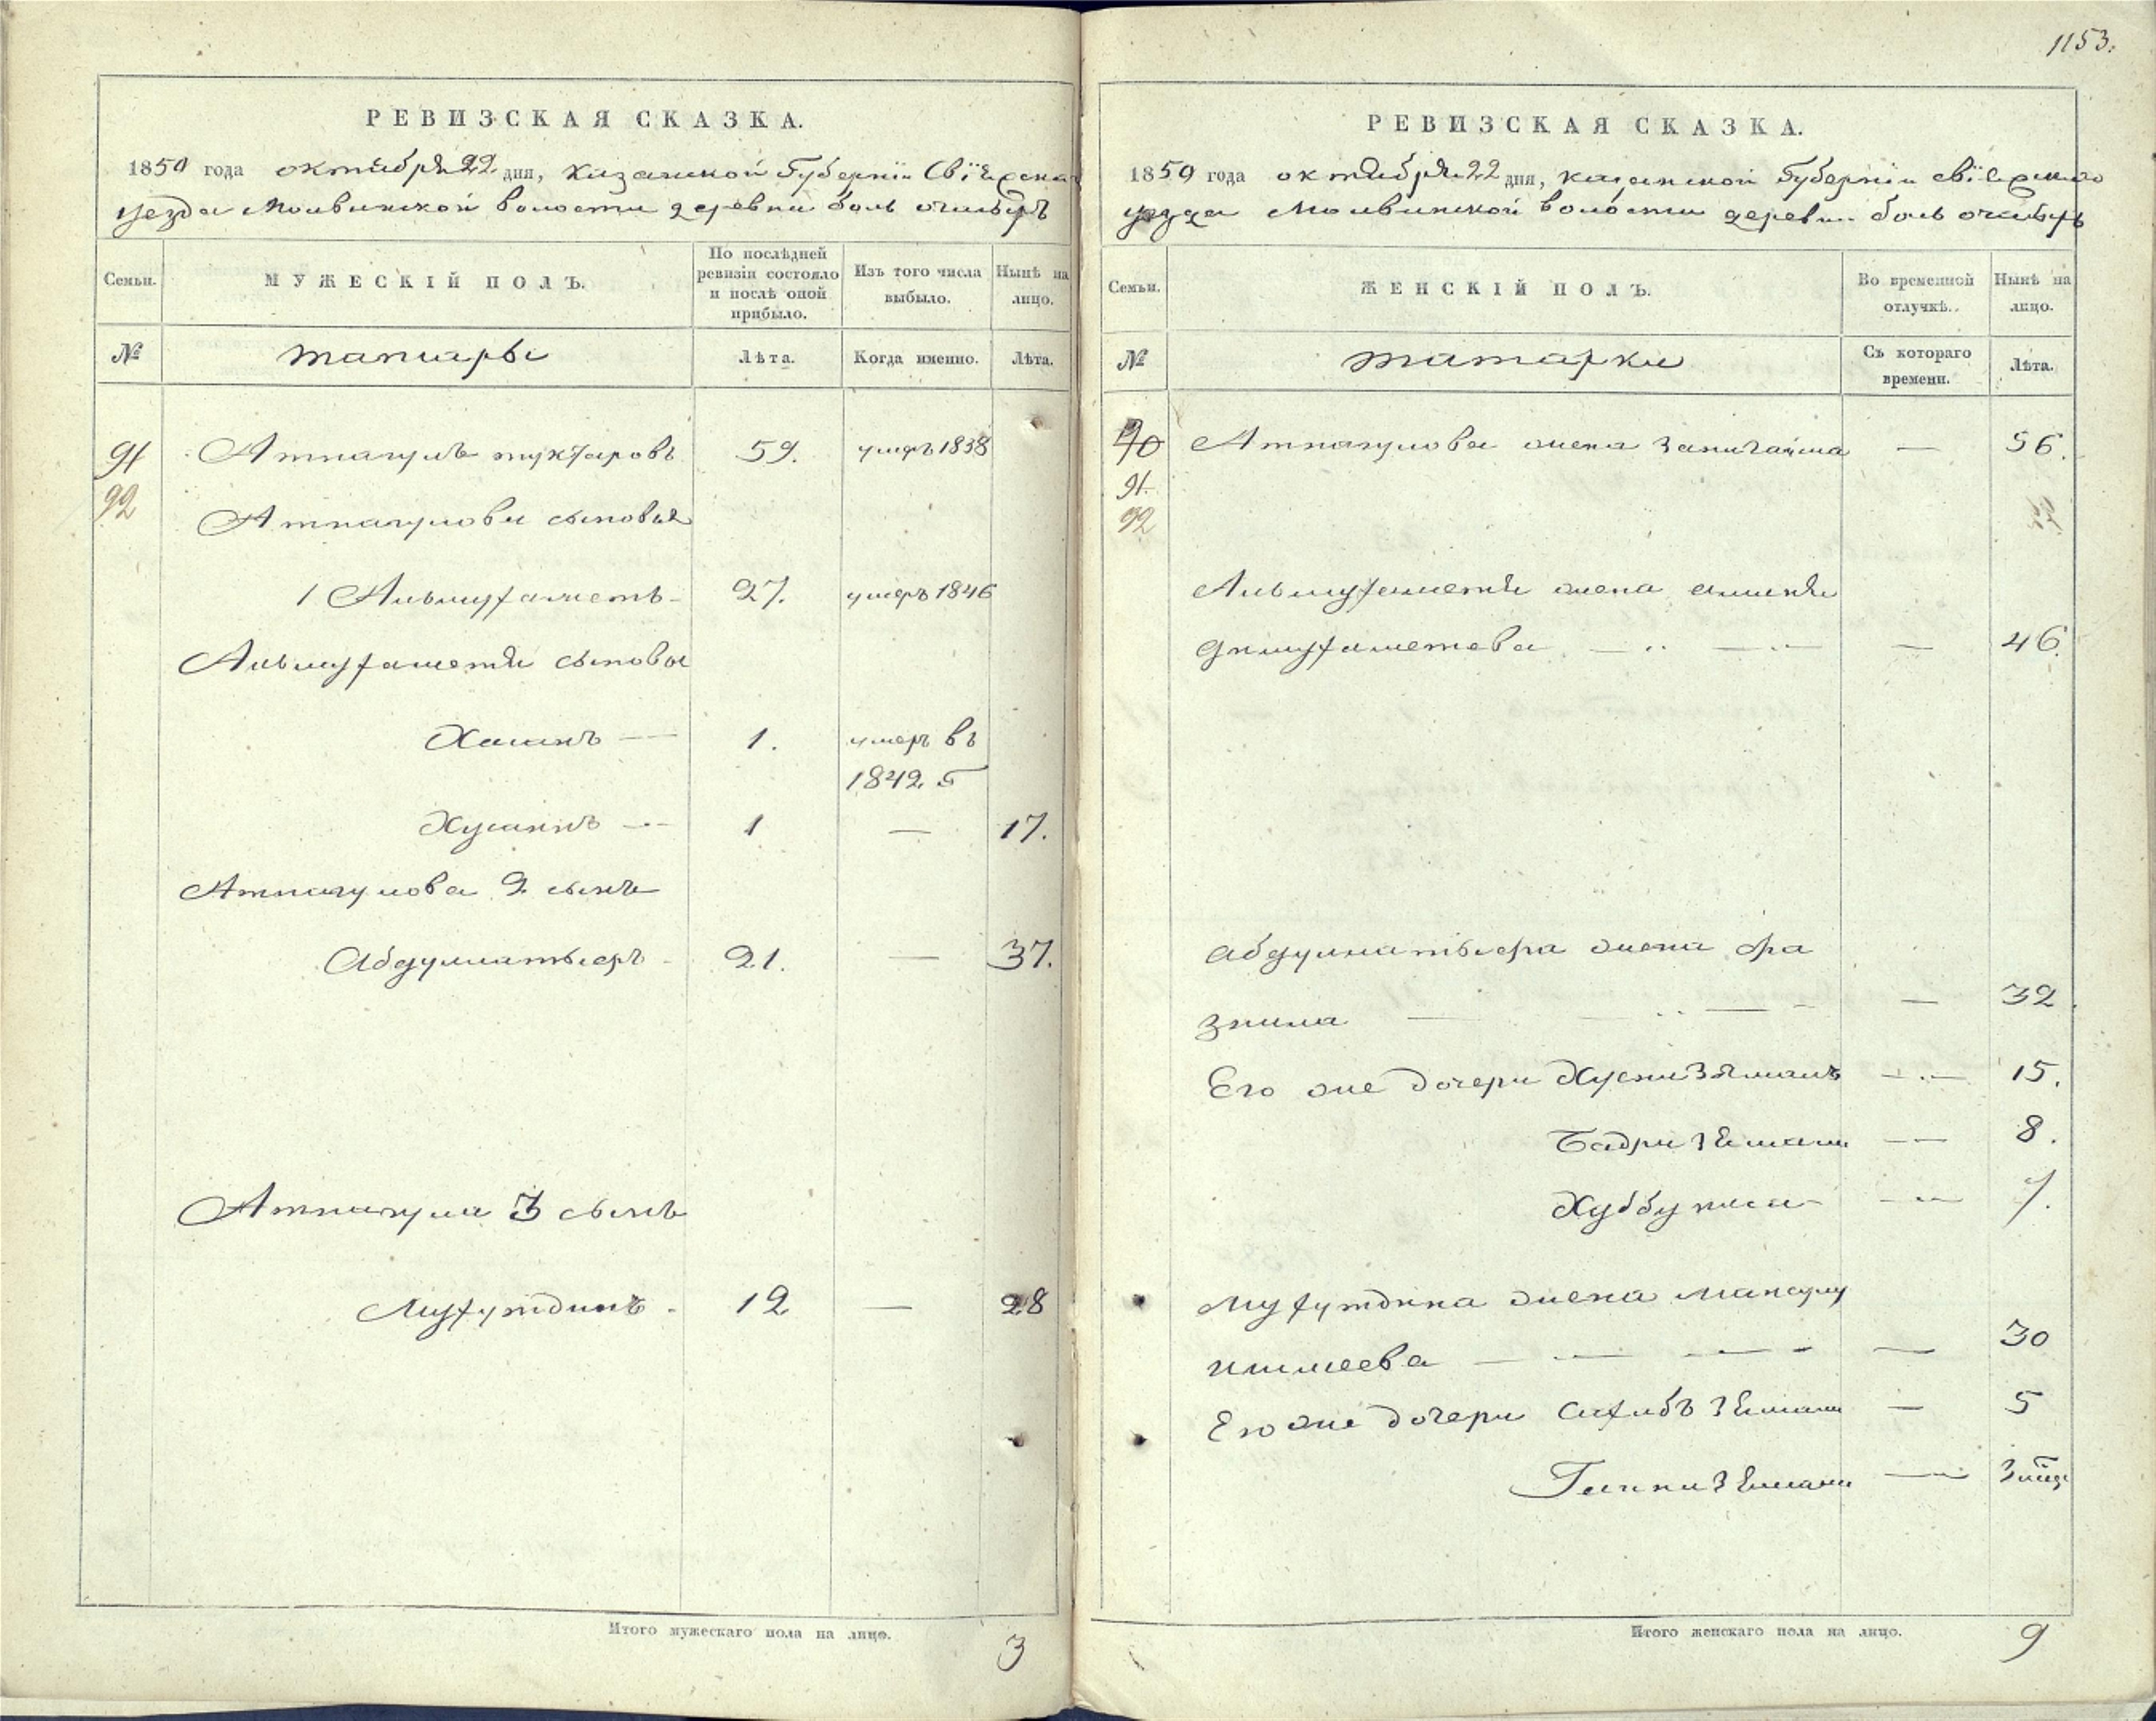 1153.
РЕВИЗСКАЯ СКАЗКА.
1850 года октября 22 дня, Казанской Губернiи Свiяжскаго
уезда Молвинской волости деревни боль очибарь
Семьи.
МУЖЕСКIЙ ПОЛЪ.
По послѣдней ревизiи состояло и послѣ оной прибыло.
Изъ того числа выбыло.
Нынѣ на лицо.
№
татары
Лѣта.
Когда именно.
Лѣта.
91 Атнагулъ мухтаровъ 59. умеръ 1838
92
Атнагулови сыновья
1 Альмухаметь 27. умеръ 1846
Альмухаметя сыновья
Хасанъ — 1. умеръ въ
1842 г
Хусаинъ — 1 — 17.
Атнагулова 2 сынъ
Абдулнатыеръ 21. — 37.
Атнагула 3 сынъ
Мухутдинъ 12 — 28
Итого мужескаго пола на лицо. 3
РЕВИЗСКАЯ СКАЗКА.
1850 года октября 22 дня, Казанской Губернiи свiяжскаго
уезда Молвинской волости деревни боль очибарь
Семьи.
ЖЕНСКIЙ ПОЛЪ.
Во временной отлучкѣ.
Нынѣ на лицо.
№
татарки
Съ котораго времени.
Лѣта.
90 Атнагулова жена — 56.
91
92
Альмухаметя жена
— 46.
Абдулнатыера жена Фа
зиила — 32
Его же дочери Хуснизяманъ — 15.
Бадризямани — 8.
Хуббуниса — 7.
Мухутдина жена
ишмеева — 30
Его же дочери Сахибъ зямани — 5
зямани — 3
Итого женскаго пола на лицо. 9